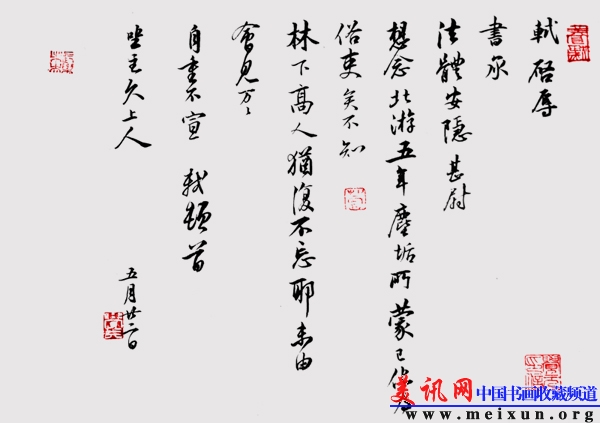 軾啓辱
書承
法體安隱甚尉
想念北游五年塵垢所蒙已
俗吏矣不知
林下高人猶復不忘耶未由
會見万々
自重不宣 軾頓首
坐主久上人
五月廿二日
美讯网 中国书画收藏频道
www.meixun.org